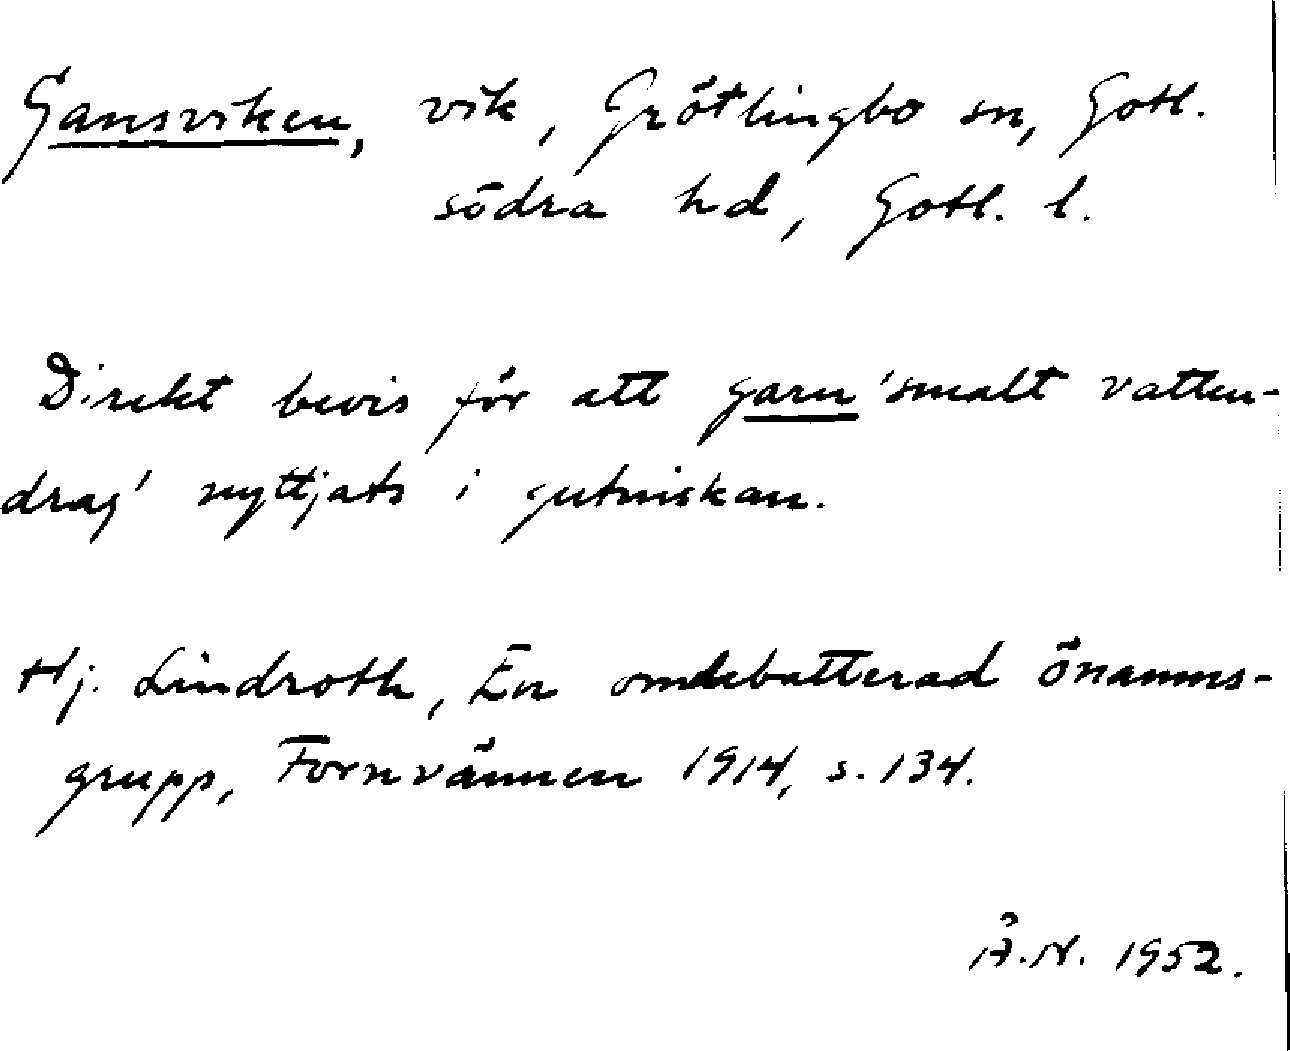 Gansviken, vik, Grötlingbo sn, Gotl.
södra hd, Gotl. l.
Direkt bevis för att garn 'smalt vatten-
drag' nyttjats i gutniskan.
Hj. Lindroth, En omdebatterad önamns-
grupp, Fornvännen 1914, s. 134.
Å.N. 1952.